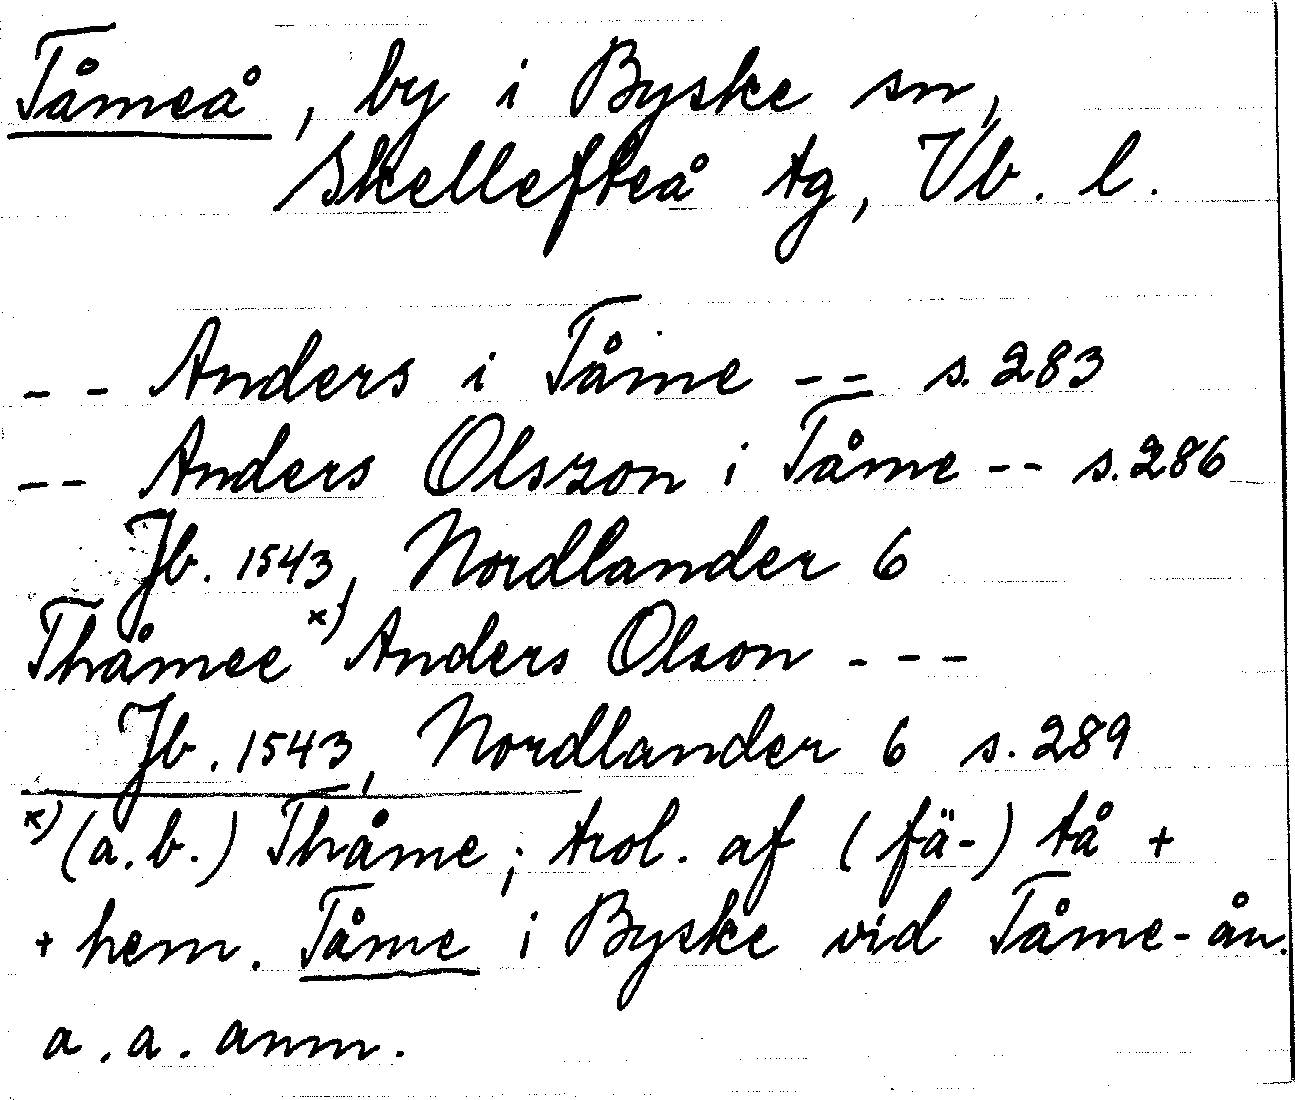 Tåmeå, by i Byske sn,
Skellefteå tg, Vb. l.
- - Anders i Tåme - - s. 283
- - Anders Olszon i Tåme - - s. 286
Jb. 1543, Nordlander 6
Thåmee x) Anders Olson - - -
Jb. 1543, Nordlander 6 s. 289
x) (a.b.) Thåme; trol. af (fä-) tå +
+ hem. Tåme i Byske vid Tåme-ån.
a. a. anm.